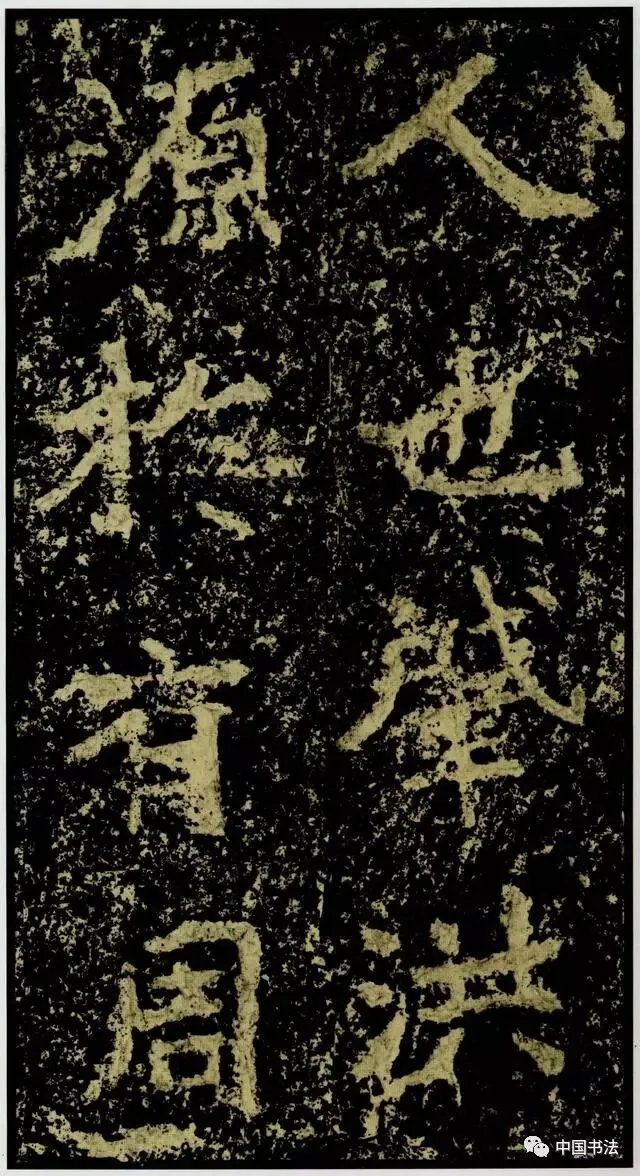 人也肇洪
源於有周
中国书法